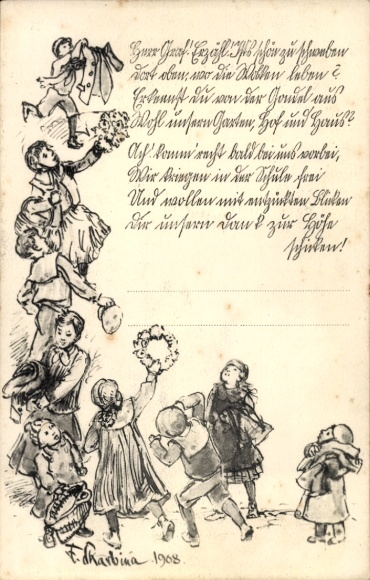 Herr Graf! Erzähl! Ists schön zu schweben
Dort oben, wo die Wolken leben?
Erkennst Du von der Gondel aus
Wohl unsern Garten, Hof und Haus?
Ach! komm' recht bald bei uns vorbei,
Wir kriegen in der Schule frei
Und wollen mit entzückten Blicken
Dir unsern Dank zur Höhe
schicken!
F. Skarbina 1908